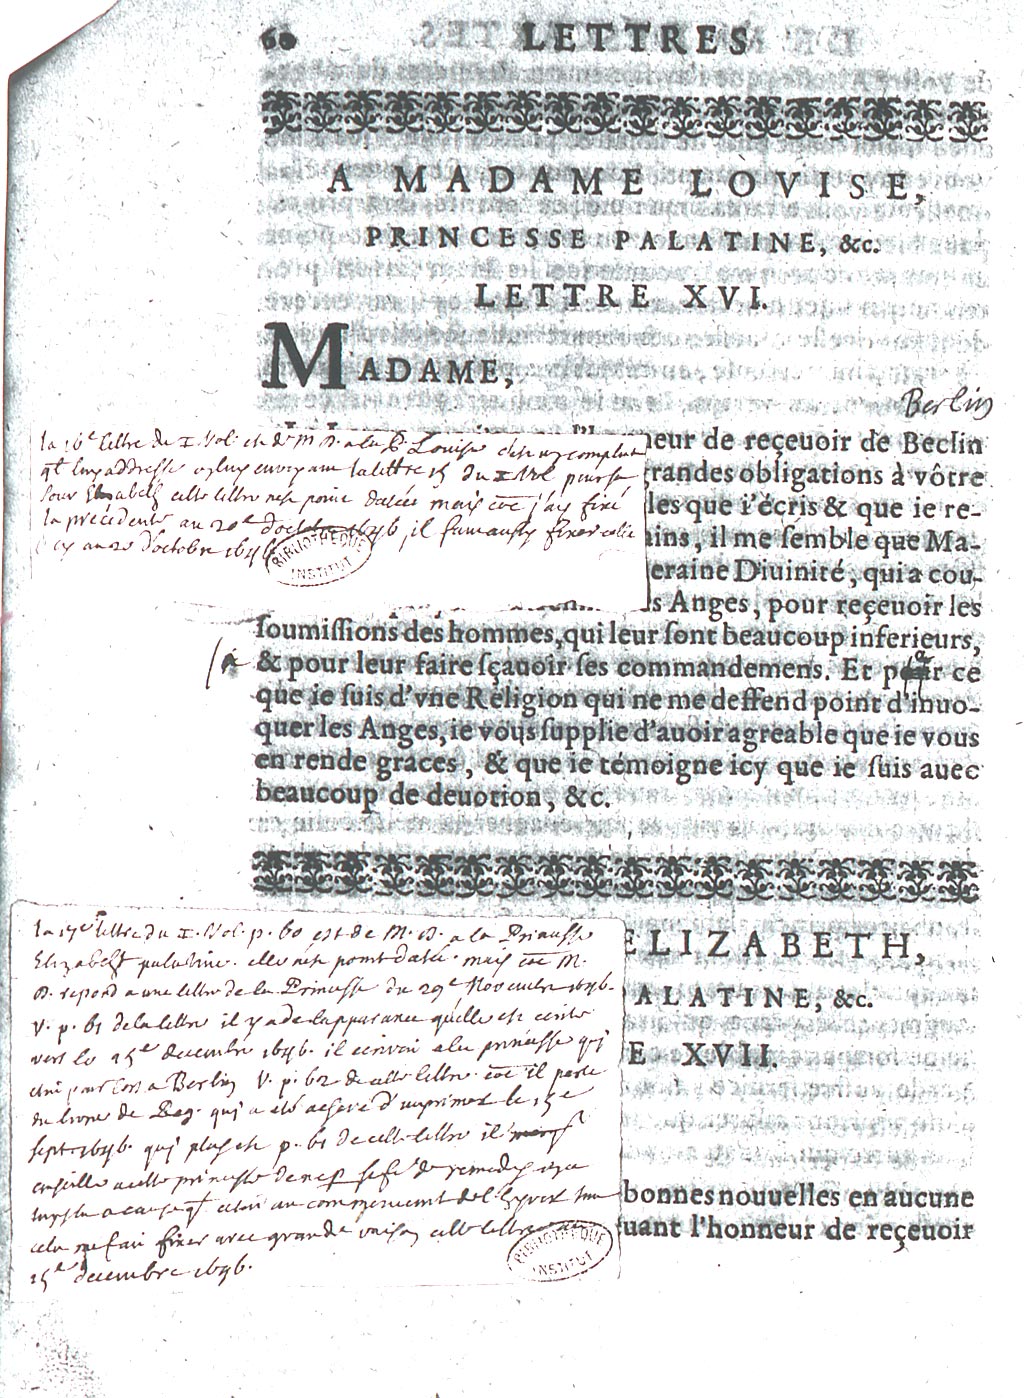 60 LETTRES
A MADAME LOVISE,
PRINCESSE PALATINE, &c.
LETTRE XVI.
MADAME,
Berlin
la 16e lettre du I. Vol. est de M D. a la P. Louise c'est un complimt
qt luy addresse en luy envoyant la lettre 15 du I Vol pour sa
soeur Elizabeth cette lettre n'est point datée mais coe j'ay fixé
la précédente au 20e d'octobre 1646, il faut aussy fixer celle
cy au 20 d'octobre 1646
BIBLIOTHEQUE
INSTITUT
neur de reçeuoir de Beclin
randes obligations à vôtre
les que i'écris & que ie re-
ains, il me semble que Ma-
eraine Diuinité, qui a cou-
s Anges, pour reçeuoir les
soumissions des hommes, qui leur sont beaucoup inferieurs,
& pour leur faire sçauoir ses commandemens. Et par ce
que ie suis d'vne Religion qui ne me deffend point d'inuo-
quer les Anges, ie vous supplie d'auoir agreable que ie vous
en rende graces, & que ie témoigne icy que ie suis auec
beaucoup de deuotion, &c.
ELIZABETH,
ALATINE, &c.
E XVII.
la 17e lettre du I. Vol. p. 60 est de M. D. a la Princesse
Elizabeth palatine. elle n'est point datée. mais coe M.
D. repond a une lettre de la Princesse du 29e Novembre 1646.
V. p. 61 de la lettre il y a de l'apparance qu'elle est écrite
vers le 15e decembre 1646. il écrivoit a la princesse qui
étoit pour lors a Berlin V. p. 62 de cette lettre. coe il parle
du livre de Reg. qui a été achevé d'imprimer le
sept. 1646. qui plus est p. 61 de cette lettre il
conseille a cette princesse de ne de remedes
a cause qt étoit au commencement de l'hyver tout
cela me fait fixer avec grande raison cette lettre au
15e decembre 1646.
BIBLIOTHEQUE
INSTITUT
bonnes nouuelles en aucune
uant l'honneur de reçeuoir